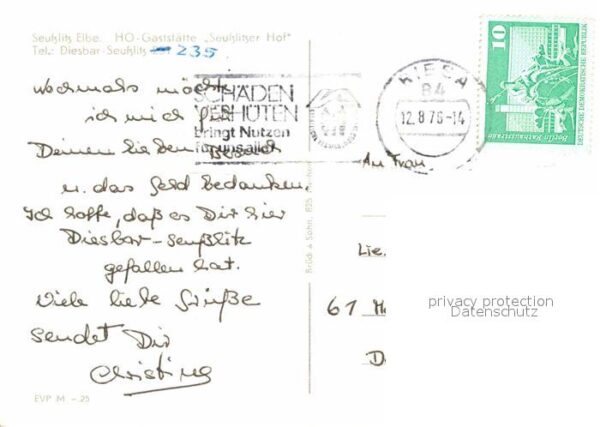 Seußlitz Elbe. HO-Gaststätte „Seußlitzer Hof"
Tel.: Diesbar-Seußlitz 235
Nochmals möchte
ich mich für
Deinen lieben Besuch
u. das Geld bedanken.
Ich hoffe, daß es Dir hier
Diesbar-Seußlitz
gefallen hat.
Viele liebe Grüße
sendet Dir
Christine
EVP M -.25
SCHÄDEN
VERHÜTEN
bringt Nutzen
für uns alle
RIESA
84
12.8.76-14
10
DEUTSCHE DEMOKRATISCHE REPUBLIK
Berlin, Rathausstraße
Brück & Sohn, 825 Meißen
An Frau
Lie
61
privacy protection
Datenschutz